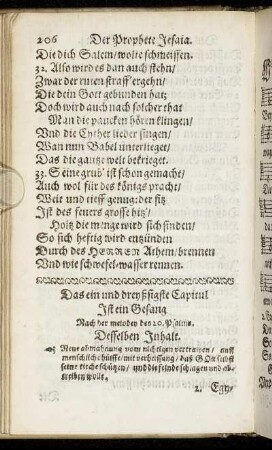 206 Der Prophete Jesaia.
Die dich Salem/ wolte schmeissen.
32. Also wird es dan auch stehn/
Zwar der ruten straff' ergehn/
Die dein Gott gebunden hat;
Doch wird auch nach solcher that
Man die paucken hören klingen/
Vnd die Cyther lieder singen/
Wan nun Babel unterlieget/
Das die gantze welt bekrieget.
33. Seine grub' ist schon gemacht/
Auch wol für des königs pracht/
Weit und tieff genung: der sitz
Ist des feuers grosse hitz'/
Holtz die menge wird sich finden/
So sich hefftig wird entzünden
Durch des HERREN Athem/ brennen
Vnd wie schwefel-wasser rennen.
Das ein und dreyßigste Capitul
Ist ein Gesang
Nach der melodey des 20. Psalms.
Desselben Inhalt.
Neue abmahnung vom nichtigen vertrauen/ auff
menschliche hülffe/ mit verheissung/ daß GOtt selbst
seine kirche schützen/ und die feinde schlagen und ab-
treiben wolle.
1. Egy-